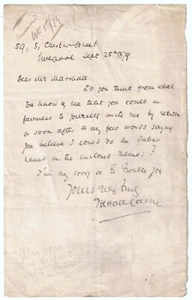 59, S, Chester Street
Liverpool Sept 25th 1879
Dear Mr Marshall
Do you think from what
you know of me that you could in
fairness to yourself write me by return
or soon after a very few words saying
you believe I could do the duties
named in the enclosed
I'm very sorry to trouble you
Yours very truly
Hall Caine